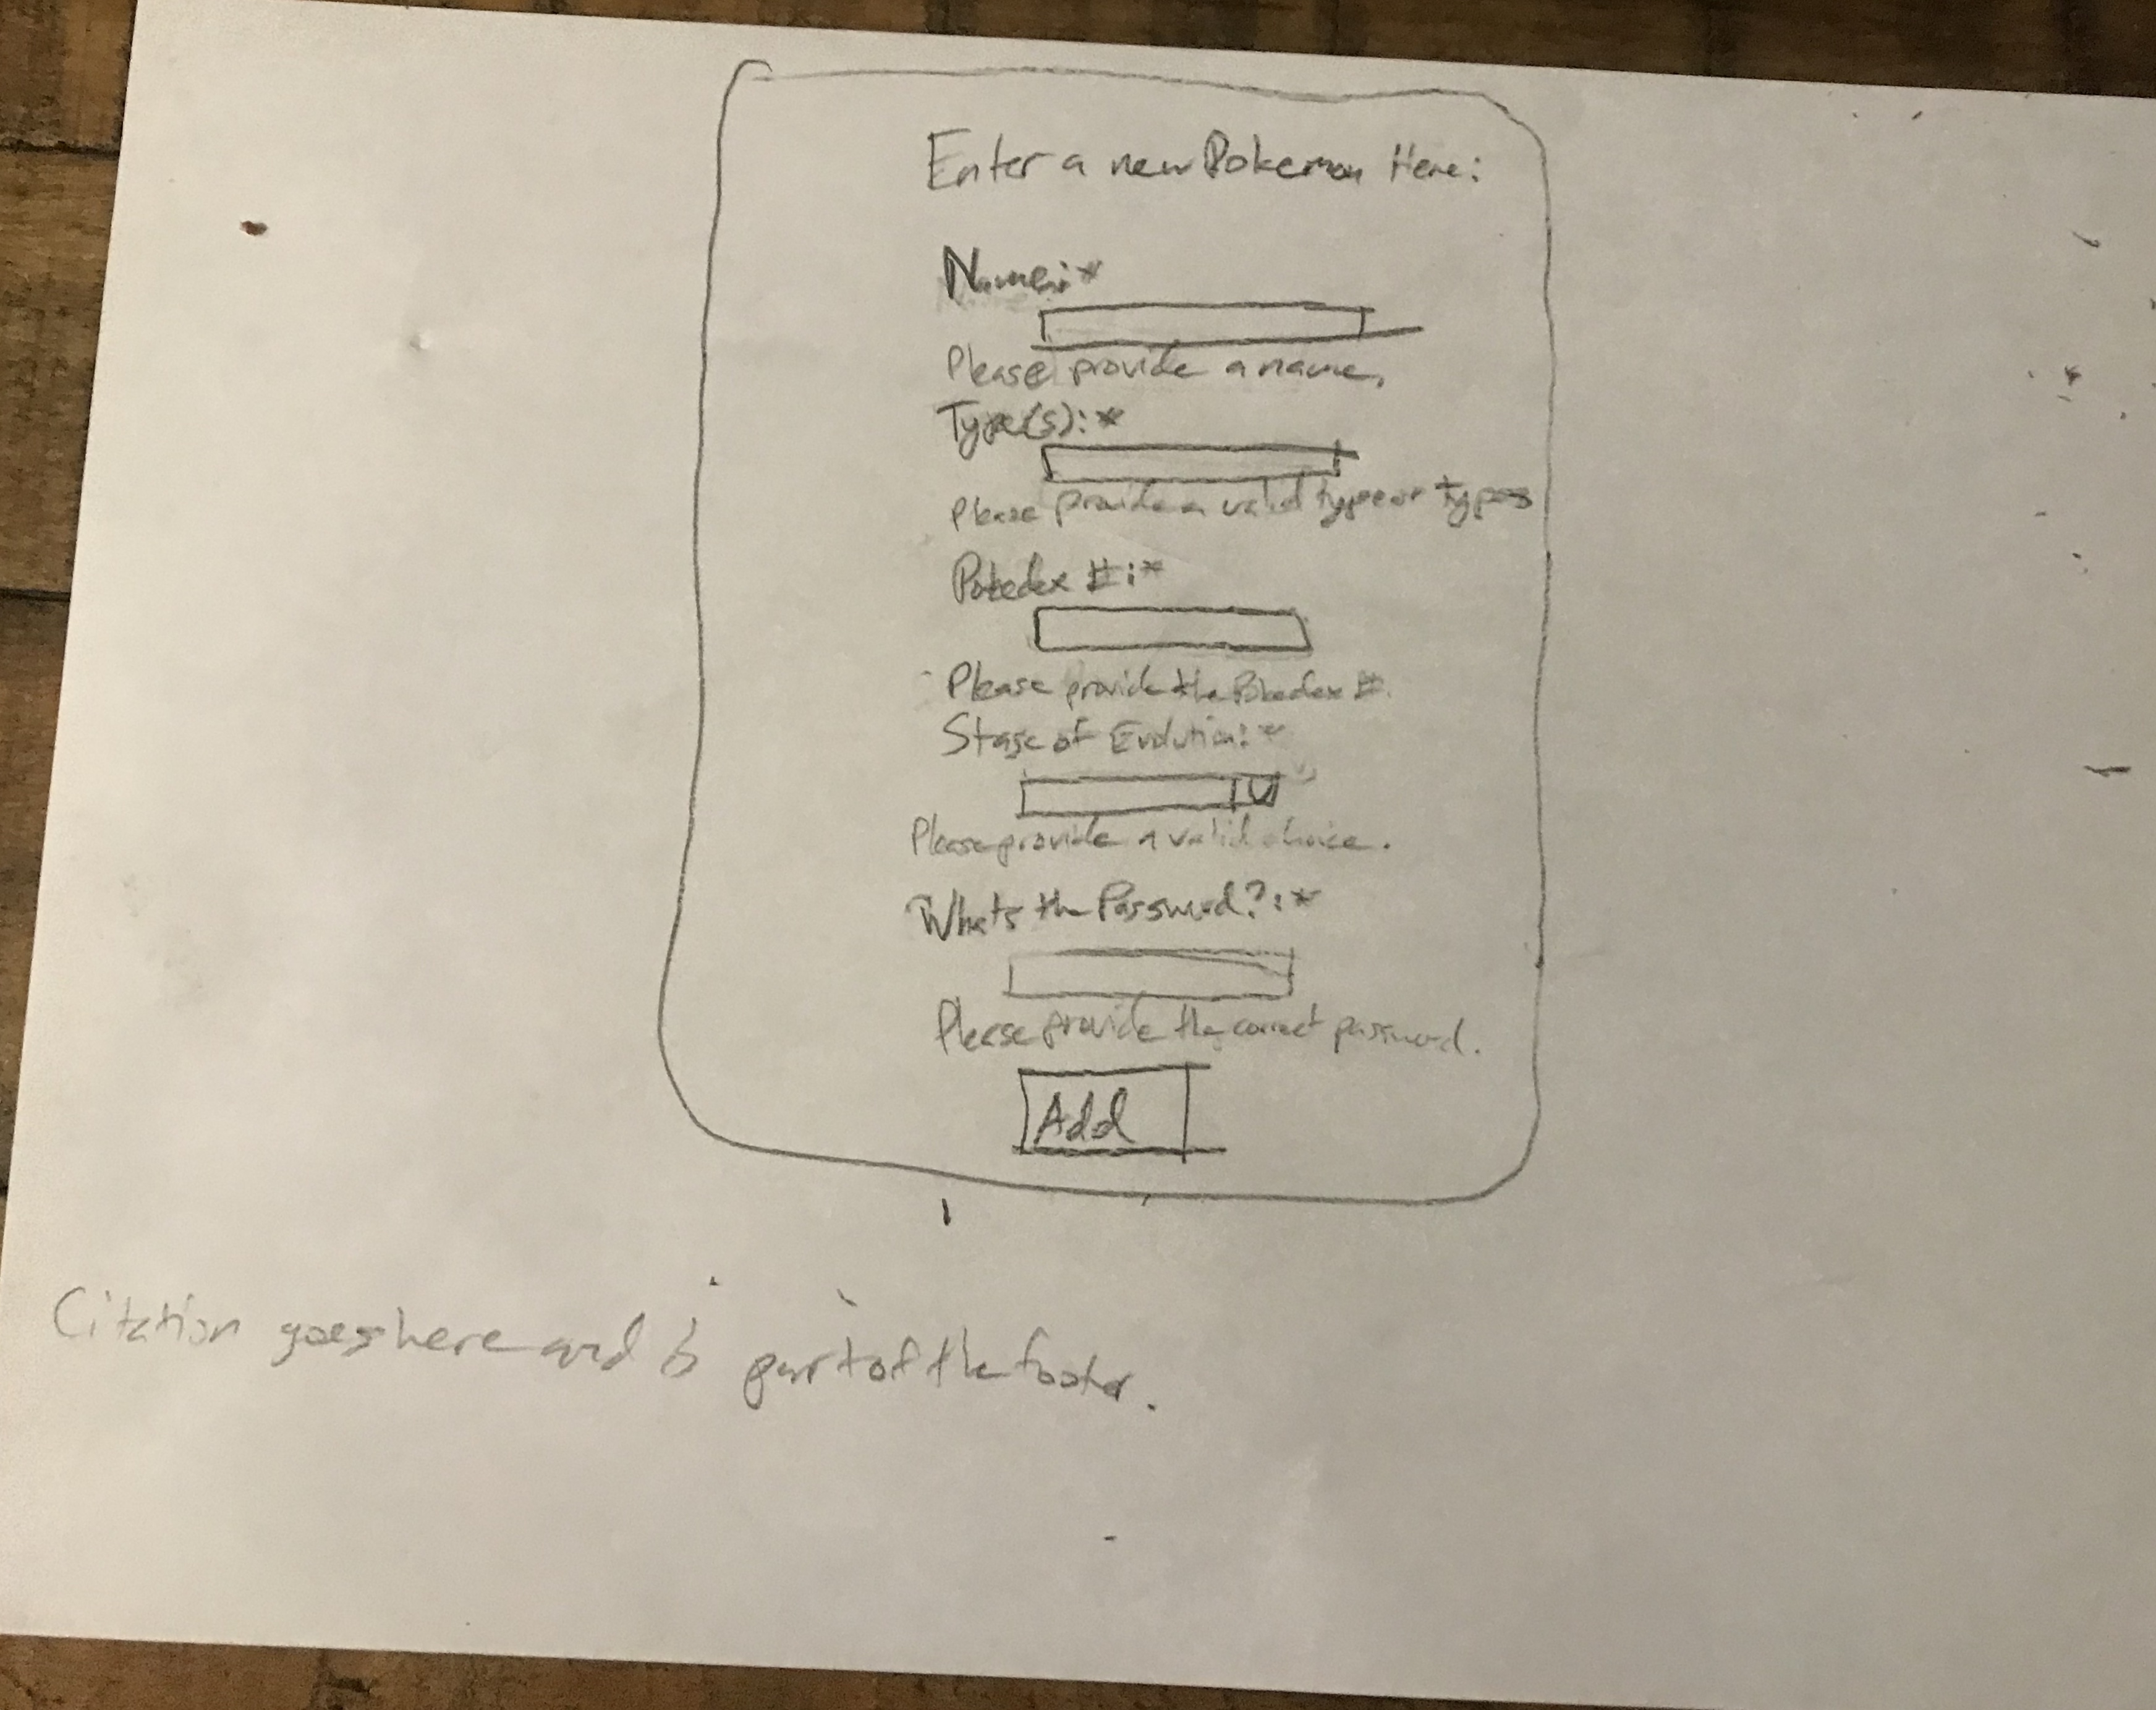 Enter a new Pokemon Here:
Name:*
Please provide a name.
Type(s):*
Please provide a valid type or types
Pokedex #:*
Please provide the Pokedex #.
Stage of Evolution:*
Please provide a valid choice.
What's the Password?:*
Please provide the correct password.
Add
Citation goes here and is part of the footer.